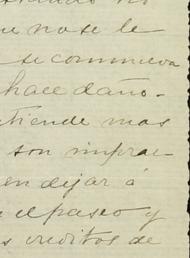 no
no se le
se conmueva
hace daño.
tiende mas
son impra-
en dejar á
el paseo y
creditos de